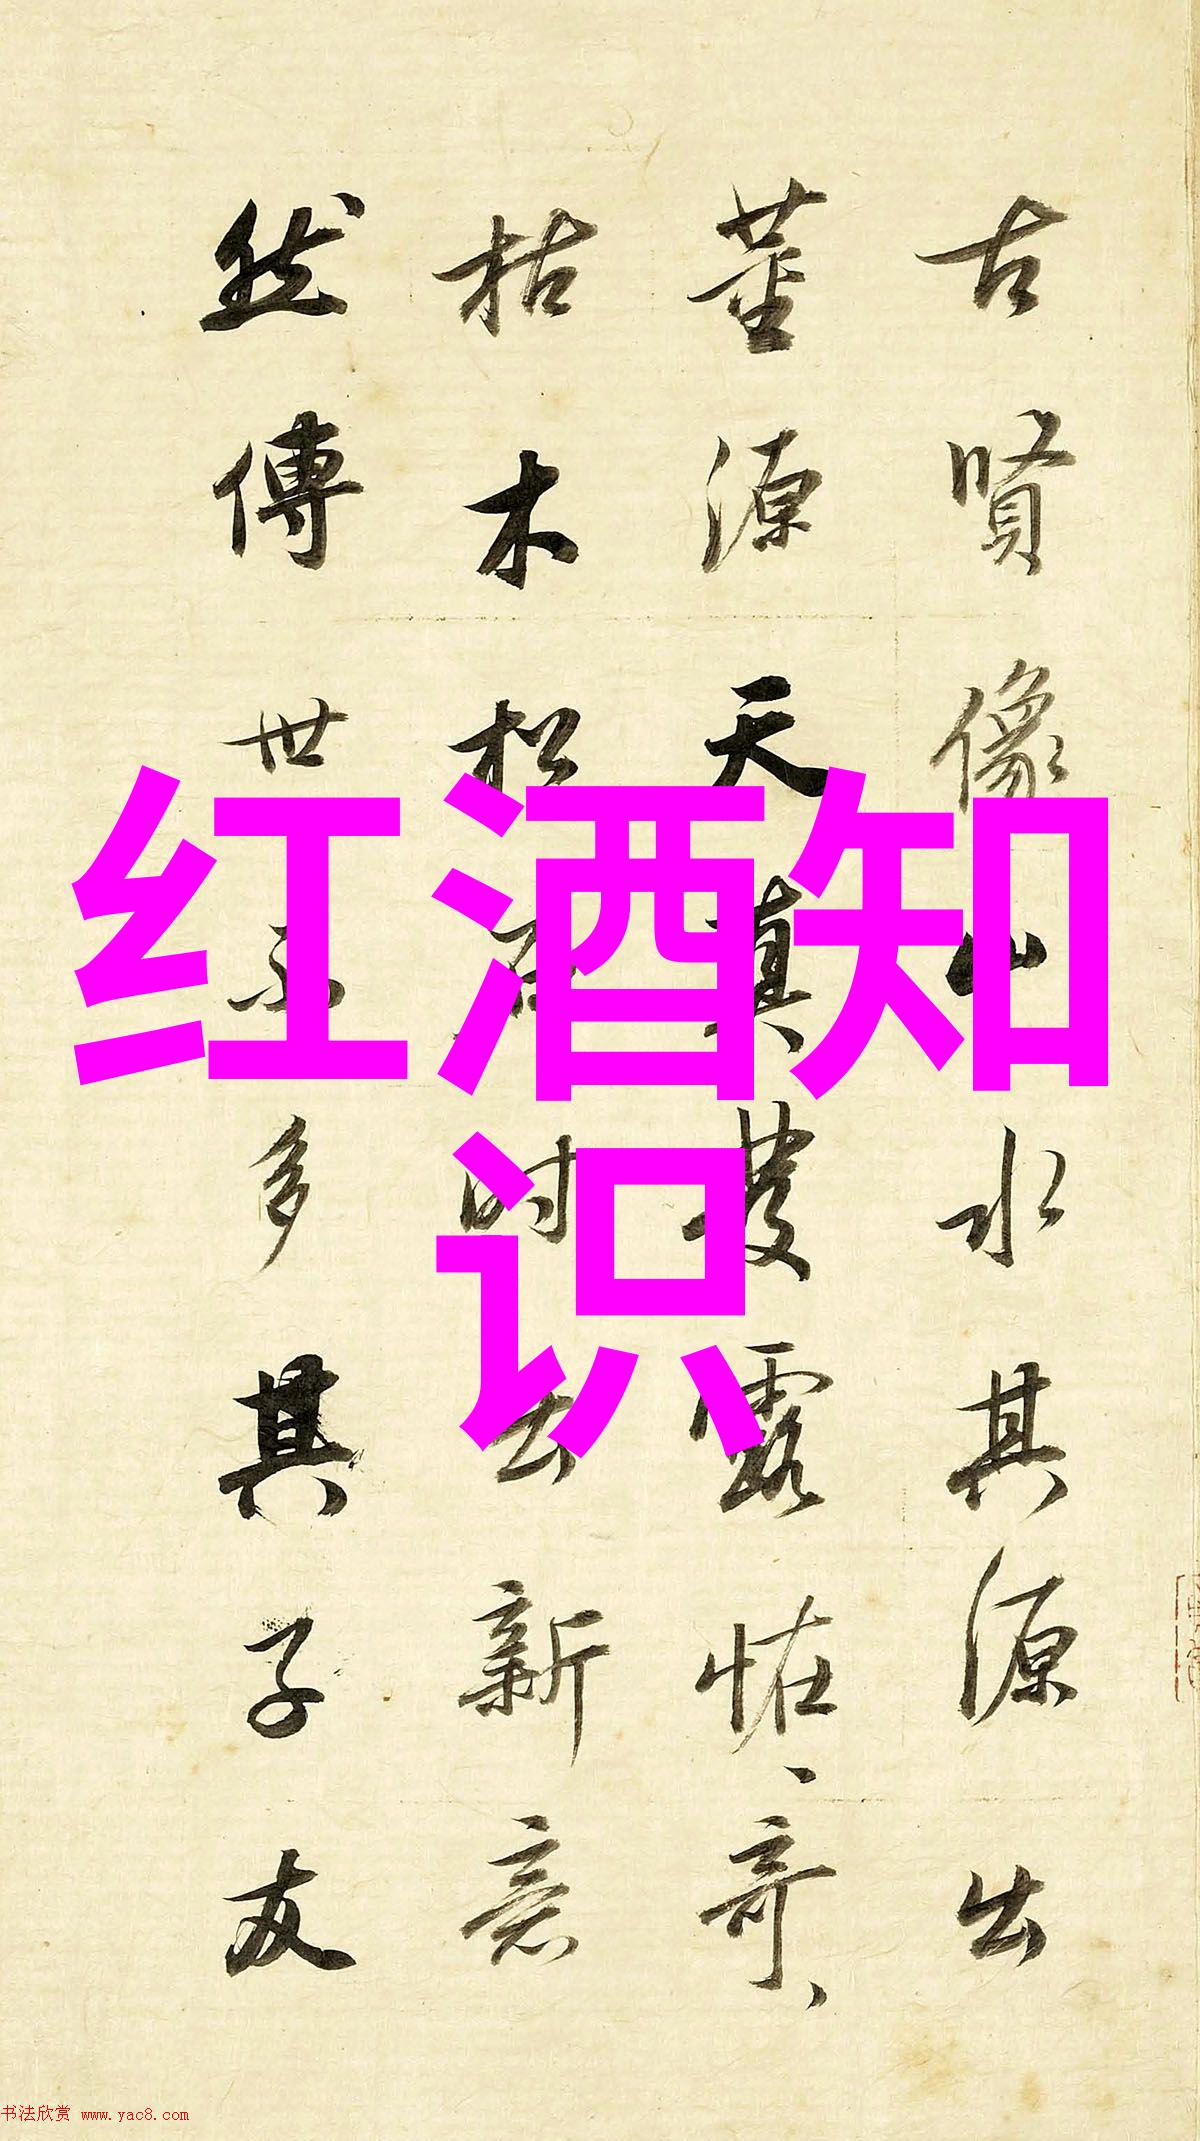 古賢像山水其源出
董源天真發露恠、奇、
枯木松石时出新意
然傳世不多其子友
红酒知
识
书法欣赏 www.yac8.com